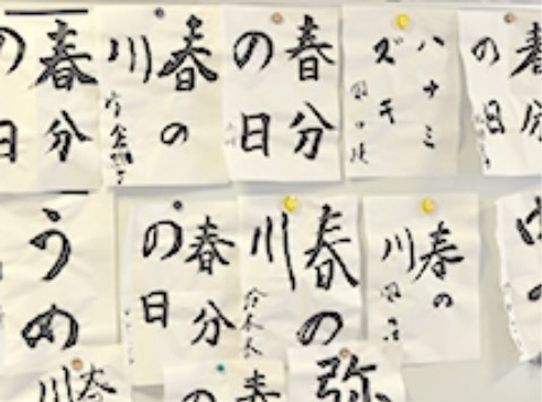 春分
の日
春の
川
春分
の日
ハナミ
ズキ
春分
の日
うめ
春分
の日
春の
川
春の
川
春
川
春
の
弥